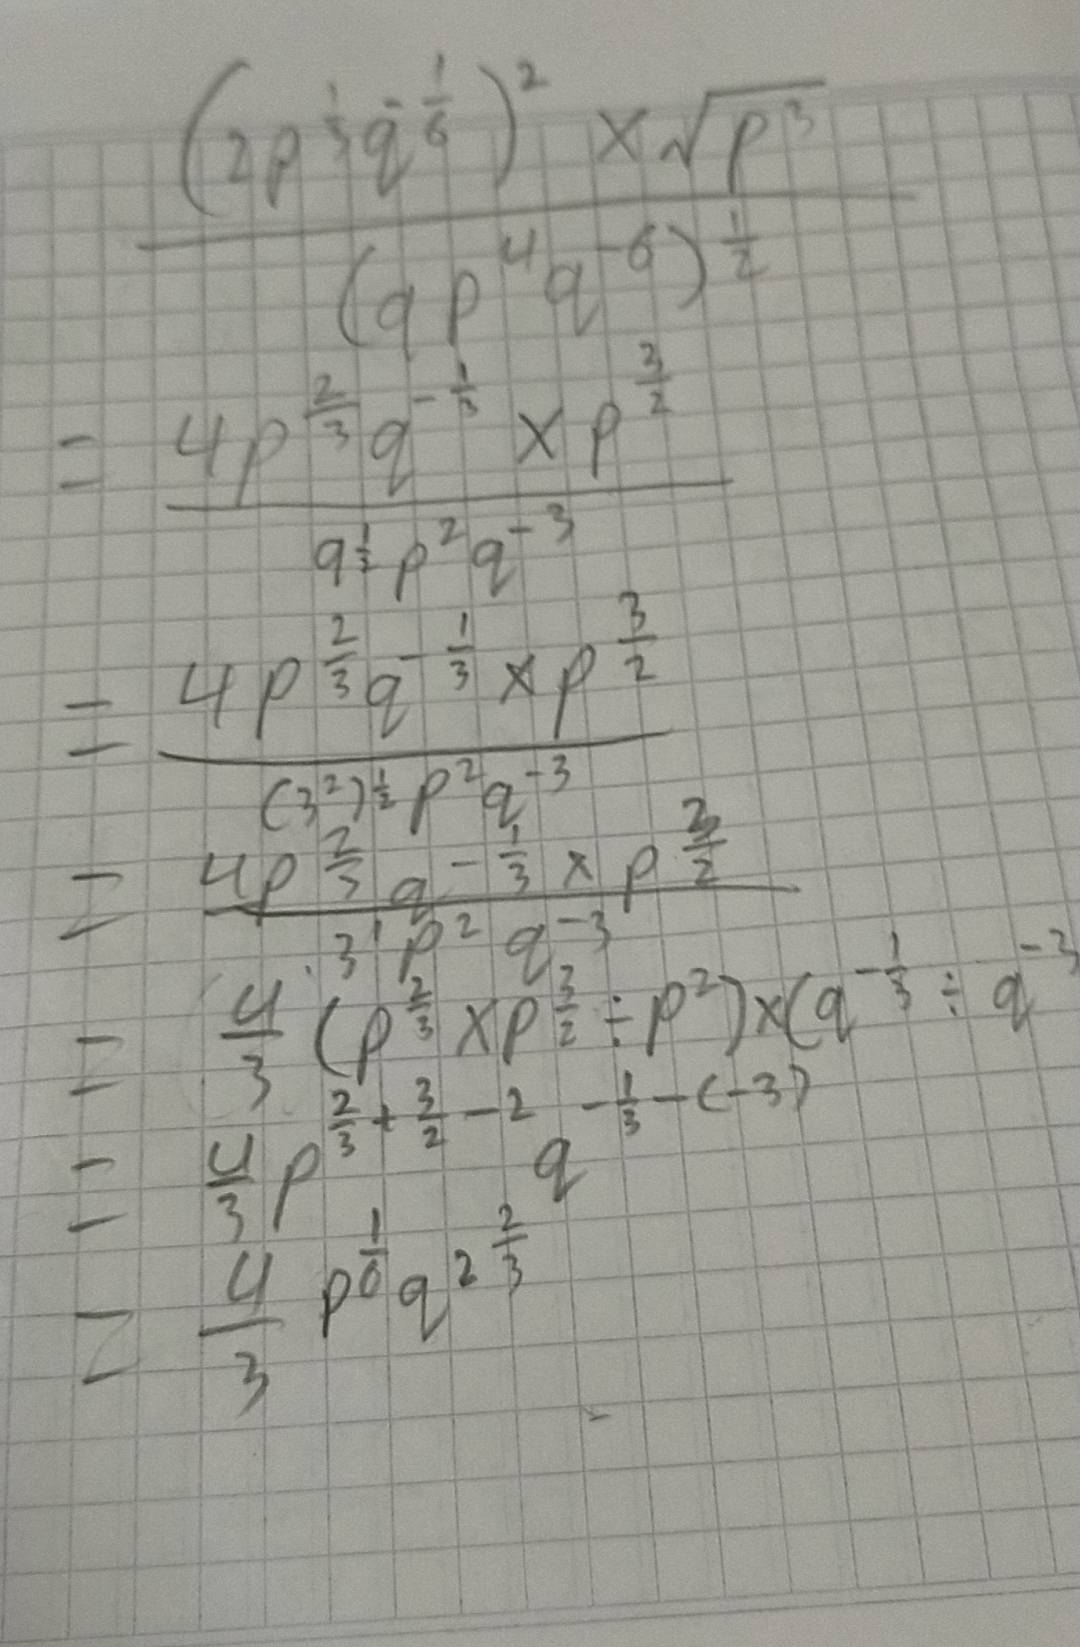 (2p^{1/3}q^{-1/6})^2 × √(p^3) / (9p^4q^{-6})^{1/2}
= 4p^{2/3}q^{-1/3} × p^{3/2} / 9^{1/2}p^2q^{-3}
= 4p^{2/3}q^{-1/3} × p^{3/2} / (3^2)^{1/2}p^2q^{-3}
= 4p^{2/3}q^{-1/3} × p^{3/2} / 3^1p^2q^{-3}
= 4/3 (p^{2/3} × p^{3/2} ÷ p^2) × (q^{-1/3} ÷ q^{-3}
= 4/3 p^{2/3 + 3/2 - 2} q^{-1/3 - (-3)}
= 4/3 p^{1/6} q^{2 2/3}